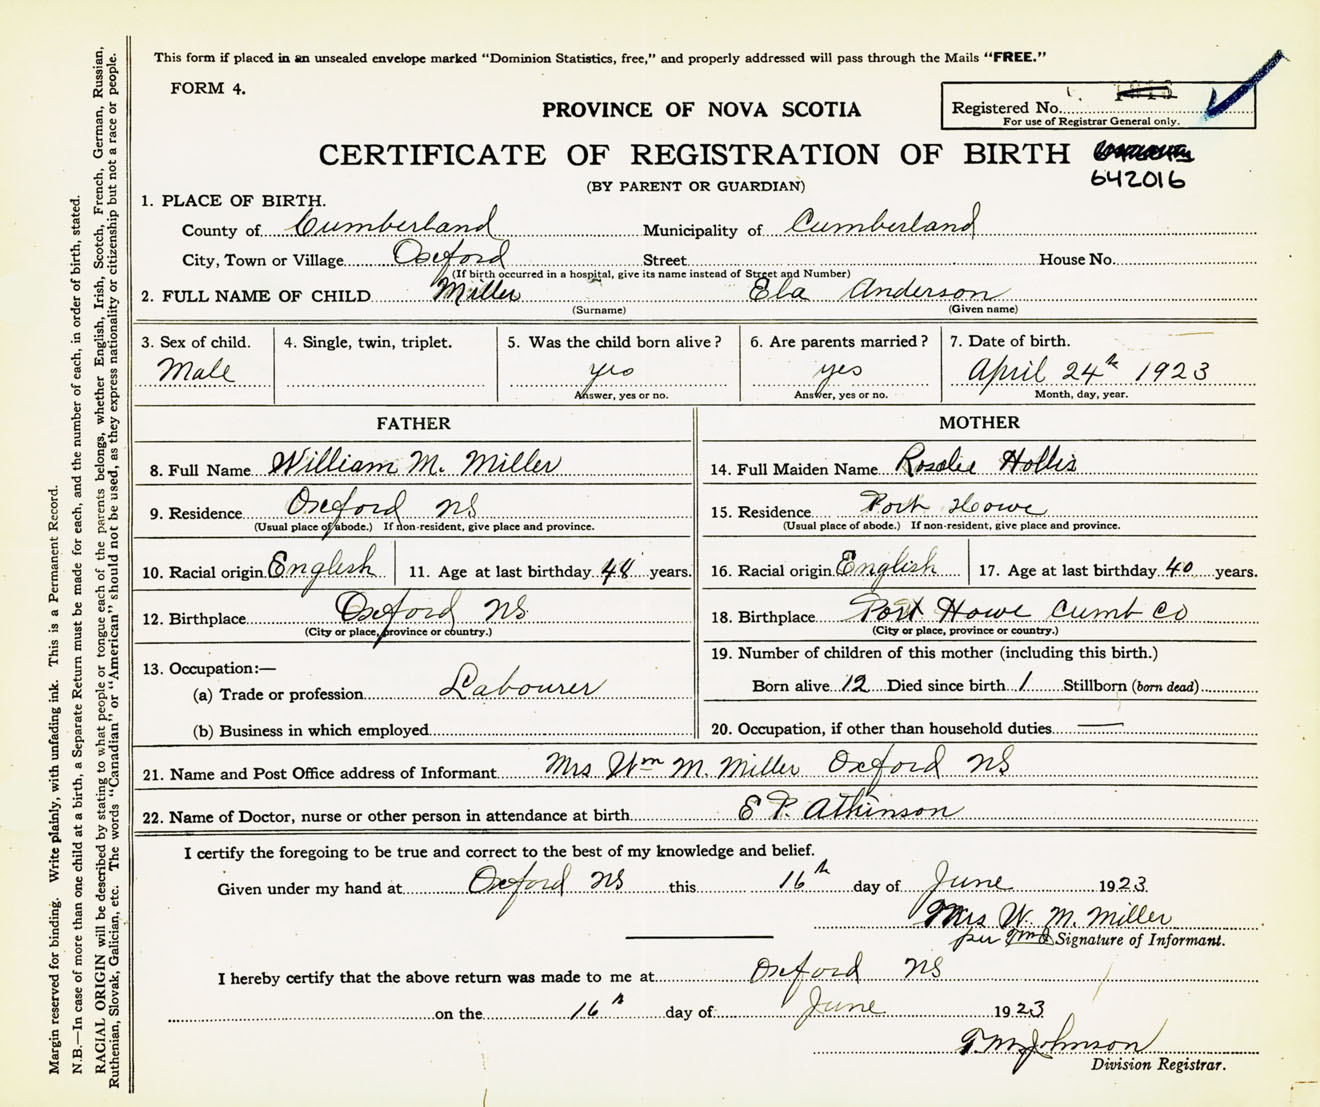 This form if placed in an unsealed envelope marked "Dominion Statistics, free," and properly addressed will pass through the Mails "FREE."
FORM 4.
PROVINCE OF NOVA SCOTIA
Registered No.
For use of Registrar General only.
CERTIFICATE OF REGISTRATION OF BIRTH
642016
(BY PARENT OR GUARDIAN)
1. PLACE OF BIRTH.
County of Cumberland Municipality of Cumberland
City, Town or Village Oxford Street House No.
(If birth occurred in a hospital, give its name instead of Street and Number)
2. FULL NAME OF CHILD Miller Ela Anderson
(Surname) (Given name)
3. Sex of child. 4. Single, twin, triplet. 5. Was the child born alive? 6. Are parents married? 7. Date of birth.
Male yes yes April 24th 1923
Answer, yes or no. Answer, yes or no. Month, day, year.
FATHER MOTHER
8. Full Name William M. Miller
9. Residence Oxford NS
(Usual place of abode.) If non-resident, give place and province.
10. Racial origin English 11. Age at last birthday 48 years.
12. Birthplace Oxford NS
(City or place, province or country.)
13. Occupation:—
(a) Trade or profession Labourer
(b) Business in which employed
14. Full Maiden Name Rosalie Hollis
15. Residence Port Howe
(Usual place of abode.) If non-resident, give place and province.
16. Racial origin English 17. Age at last birthday 40 years.
18. Birthplace Port Howe Cumb Co
(City or place, province or country.)
19. Number of children of this mother (including this birth.)
Born alive 12 Died since birth 1 Stillborn (born dead)
20. Occupation, if other than household duties —
21. Name and Post Office address of Informant Mrs Wm M. Miller Oxford NS
22. Name of Doctor, nurse or other person in attendance at birth E P. Atkinson
I certify the foregoing to be true and correct to the best of my knowledge and belief.
Given under my hand at Oxford NS this 16th day of June 1923
Mrs W. M. Miller
per Signature of Informant.
I hereby certify that the above return was made to me at Oxford NS
on the 16th day of June 1923
T. M. Johnson
Division Registrar.
Margin reserved for binding. Write plainly, with unfading ink. This is a Permanent Record.
N.B.—In case of more than one child at a birth, a Separate Return must be made for each, and the number of each, in order of birth, stated.
RACIAL ORIGIN will be described by stating to what people or tongue each of the parents belongs, whether English, Irish, Scotch, French, German, Russian,
Ruthenian, Slovak, Galician, etc. The words "Canadian" or "American" should not be used, as they express nationality or citizenship but not a race or people.